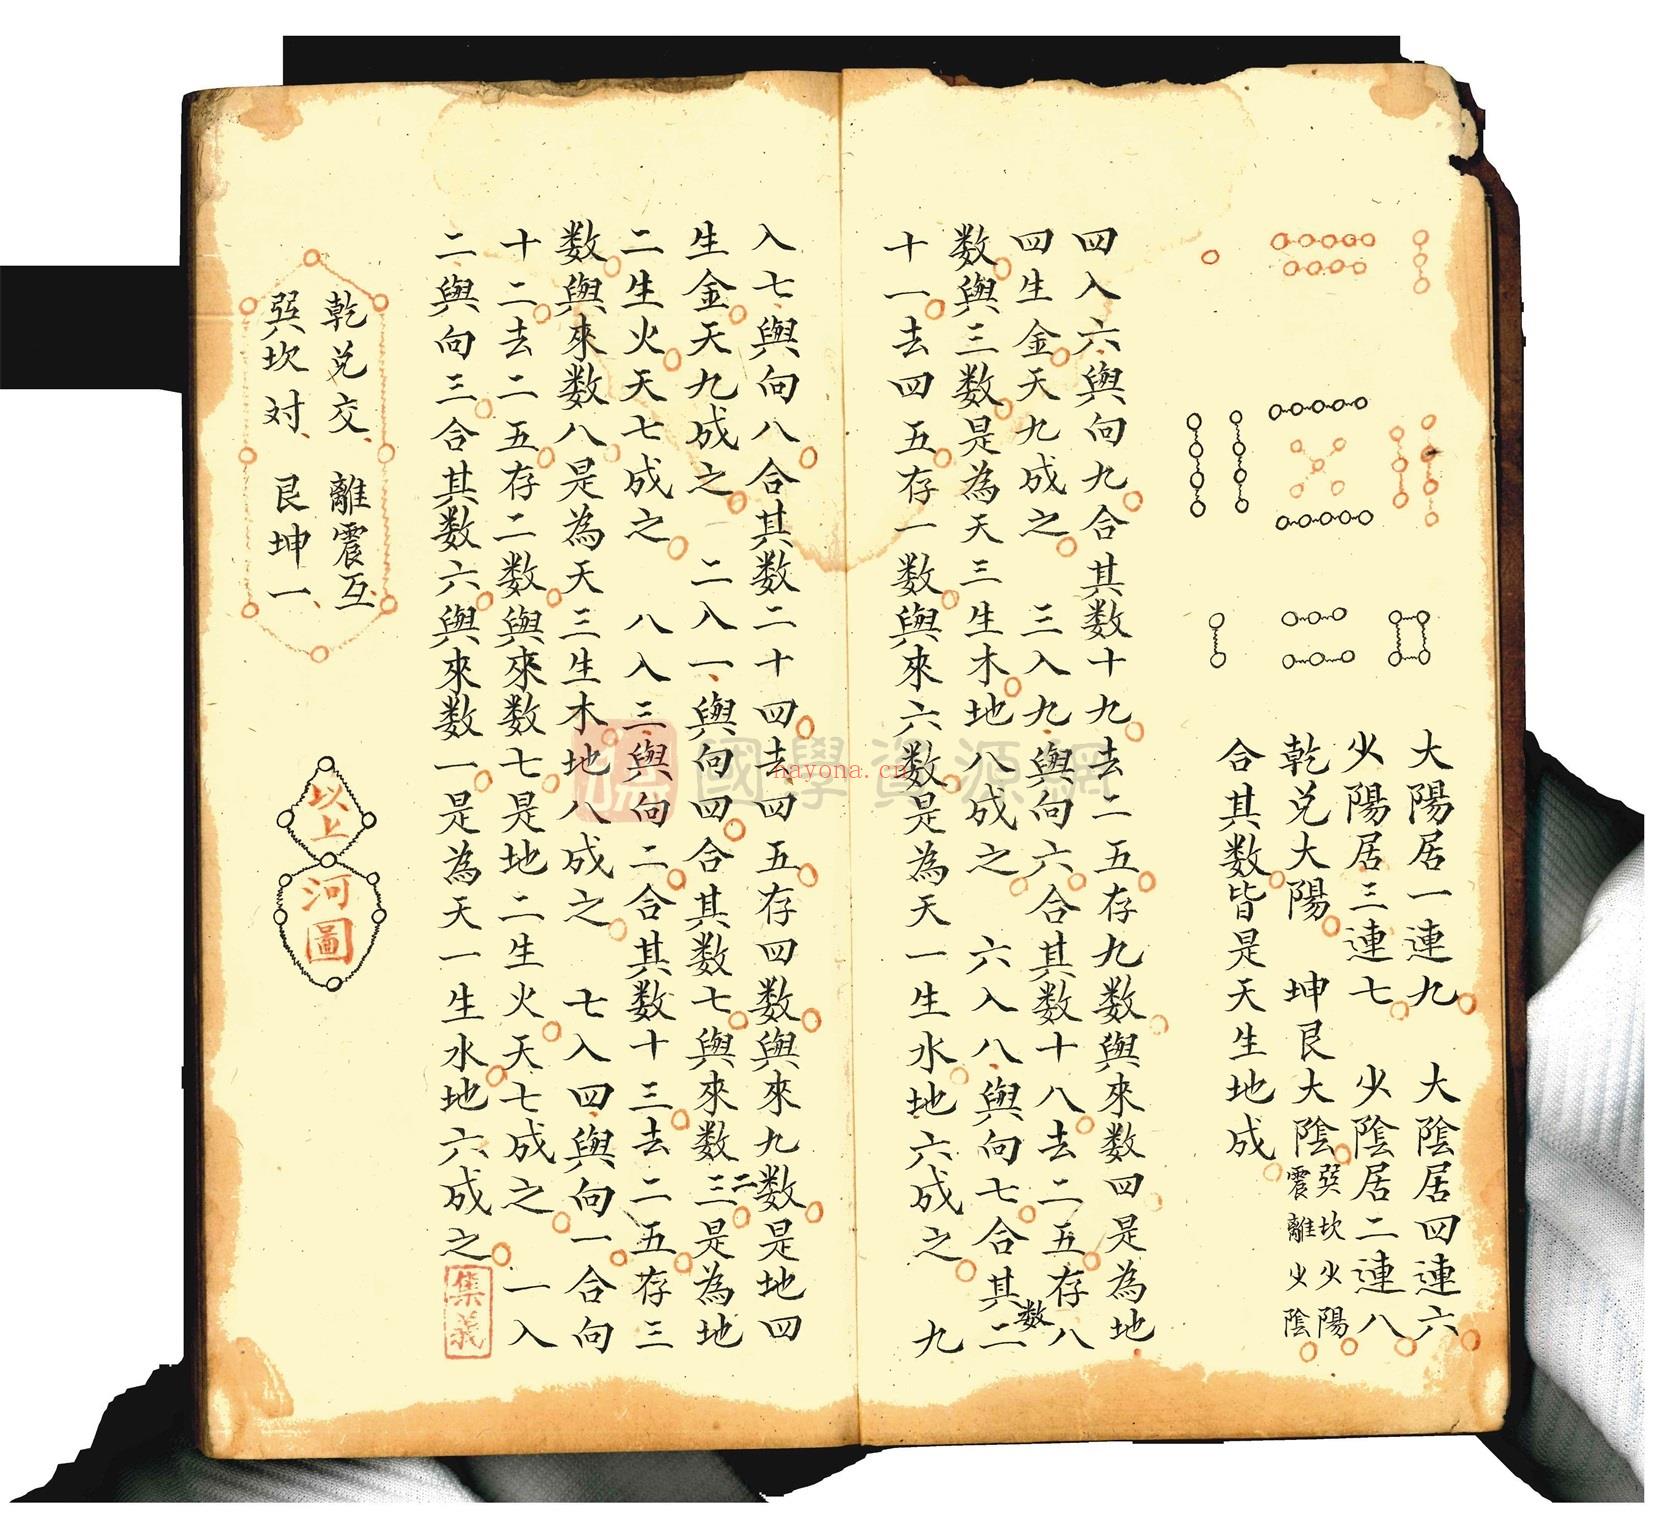 大陽居一連九　大陰居四連六
少陽居三連七　少陰居二連八
乾兌大陽　坤艮大陰
巽坎少陽
震離少陰
合其数皆是天生地成
四入六與向九合其数十九去二五存九数與來数四是為地
四生金天九成之　三入九與向六合其数十八去二五存八
数與三数是為天三生木地八成之　六入八與向七合其数二
十一去四五存一数與來六数是為天一生水地六成之　九
入七與向八合其数二十四去四五存四数與來九数是地四
生金天九成之　二入一與向四合其数七與來数三二是為地
二生火天七成之　八入三與向二合其数十三去二五存三
数與來数八是為天三生木地八成之　七入四與向一合向
十二去二五存二数與來数七是地二生火天七成之　一入
二與向三合其数六與來数一是為天一生水地六成之
集義
乾兌交　離震互
巽坎对　艮坤一
以上
河圖
國學資源網
nayona.cn